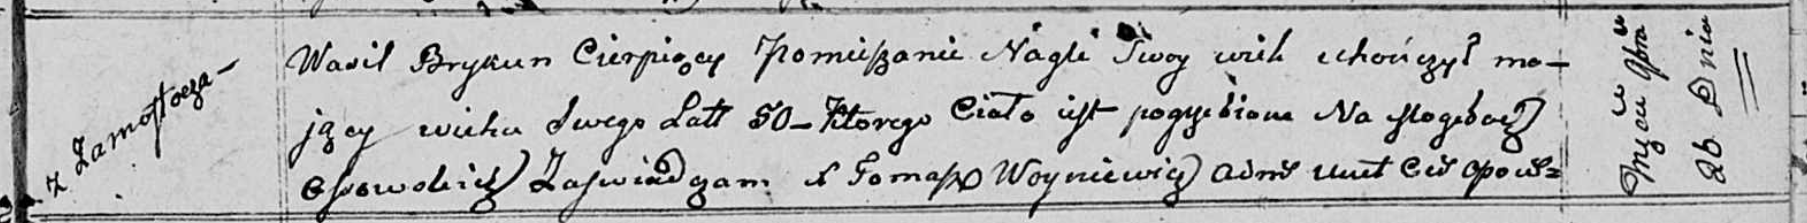 z Zamostocza —
Wasil Brykun Cierpiący Pomieszanie Nagle Swoy wiek ukończył ma–
jący wieku Swego Latt 50 – Ktorego Ciało jest pogrzebione Na Mogiłach
Zaświadczam X Tomasz Woyniewicz Adm
26 Dnia